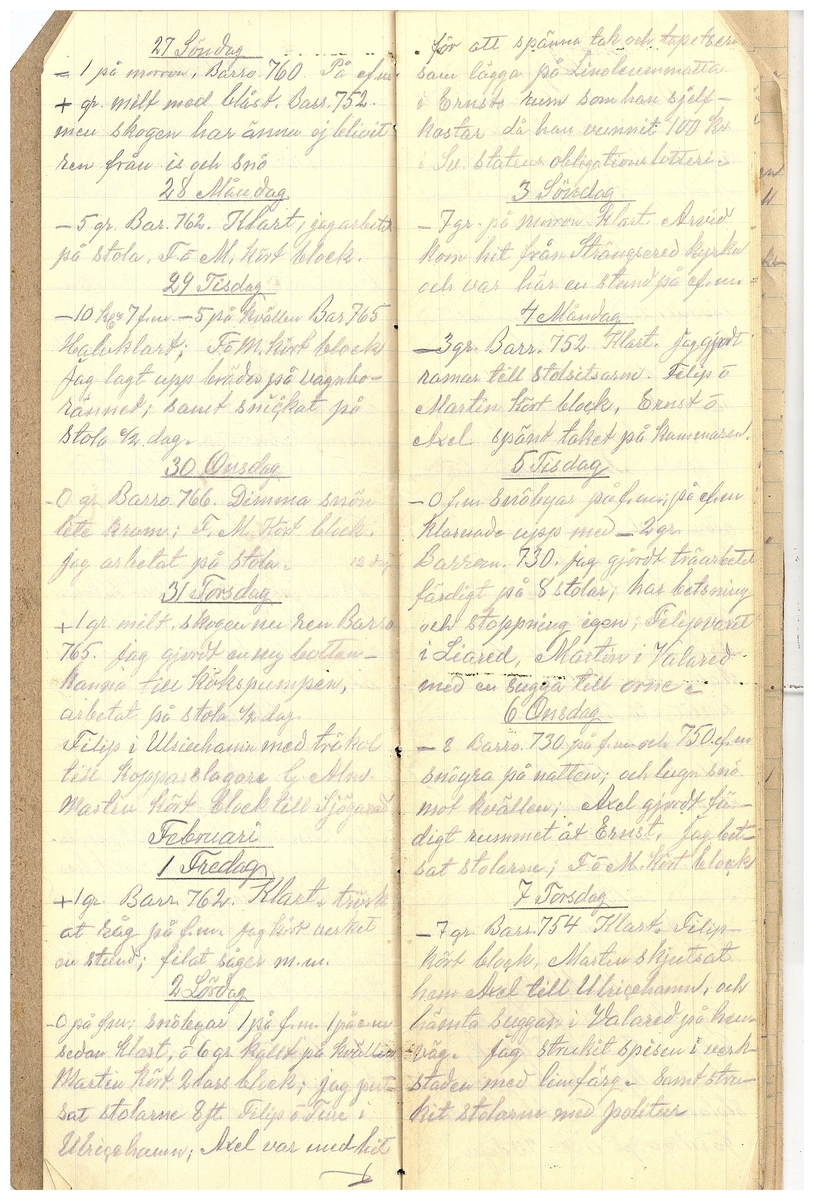 27 Söndag
= 1 på morron, Barro. 760. På ef.m.
+ gr. milt med blåst. Barr. 752.
men skogen har ännu ej blivit
ren från is och snö
28 Måndag
– 5 gr. Bar. 762. Klart; jag arbetat
på stola. F o M. kört block.
29 Tisdag
– 10 7 f.m – 5 på kvällen Bar. 765
Halvklart; F o M. kört block
jag lagt upp bräder på vagnbo-
rännet; samt snickat på
stola 1/2 dag.
30 Onsdag
– 0 gr. Barro. 766. Dimma snön
lite kram; F. M. kört block.
jag arbetat på stola.
31 Torsdag
+ 1 gr milt, skogen nu ren Barro
765. jag gjordt en ny botten-
kanna till kökspumpen,
arbetat på stola 1/2 dag
Filip i Ulriceham med träkol
till kopparslagare C. Alm.
Martin kört block till Sjögared
Februari
1 Fredag
+ 1 gr. Barr. 762. Klart. trösk-
at råg på f.m. jag kört verket
en stund; filat sågar m.m.
2 Lördag
– 0 på f.m; snöbyar 1 på f.m. 1 på e.m
sedan klart, o 6 gr. kallt på kvällen
Martin kört 2 lass block; jag put-
sat stolarne 8 st. Filip o Ture i
Ulricehamn; Axel var med hit
för att spänna tak och tapetsera
sam lägga på Linoleummatta
i Ernsts rum som han sjelf-
kostar då han vunnit 100 Kr
i Sv. statens obligationslotteri.
3 Söndag
– 7 gr. på morron Klart. Arvid
kom hit från Strängsered kyrka
och var här en stund på ef.m.
4 Måndag
– 3 gr. Barr. 752 Klart. jag gjordt
ramar till stolsitsarne. Filip o
Martin kört block, Ernst o
Axel spänt taket på kammaren.
5 Tisdag
– 0 f.m snöbyar på f.m; på ef.m
klarnade upp med – 2 gr.
Barrom. 730. jag gjordt träarbetet
färdigt på 8 stolar; har betsning
och stoppning igen; Filip varet
i Liared, Martin i Valared
med en sugga till orne.
6 Onsdag
– 2 Barro. 730. på f.m. och 750. ef.m
snögra på natten; och lugn snö
mot kvällen; Axel gjordt fä-
digt rummet åt Ernst. jag bet-
sat stolarne; F o M. kört block
7 Torsdag
– 7 gr. Barr. 754 Klart. Filip
kört block. Martin skjutsat
hem Axel till Ulricehamn. och
hämta suggan i Valared på hem
väg. jag strukit spisen i verk-
staden med limfärg. samt stru-
kit stolarne med politur